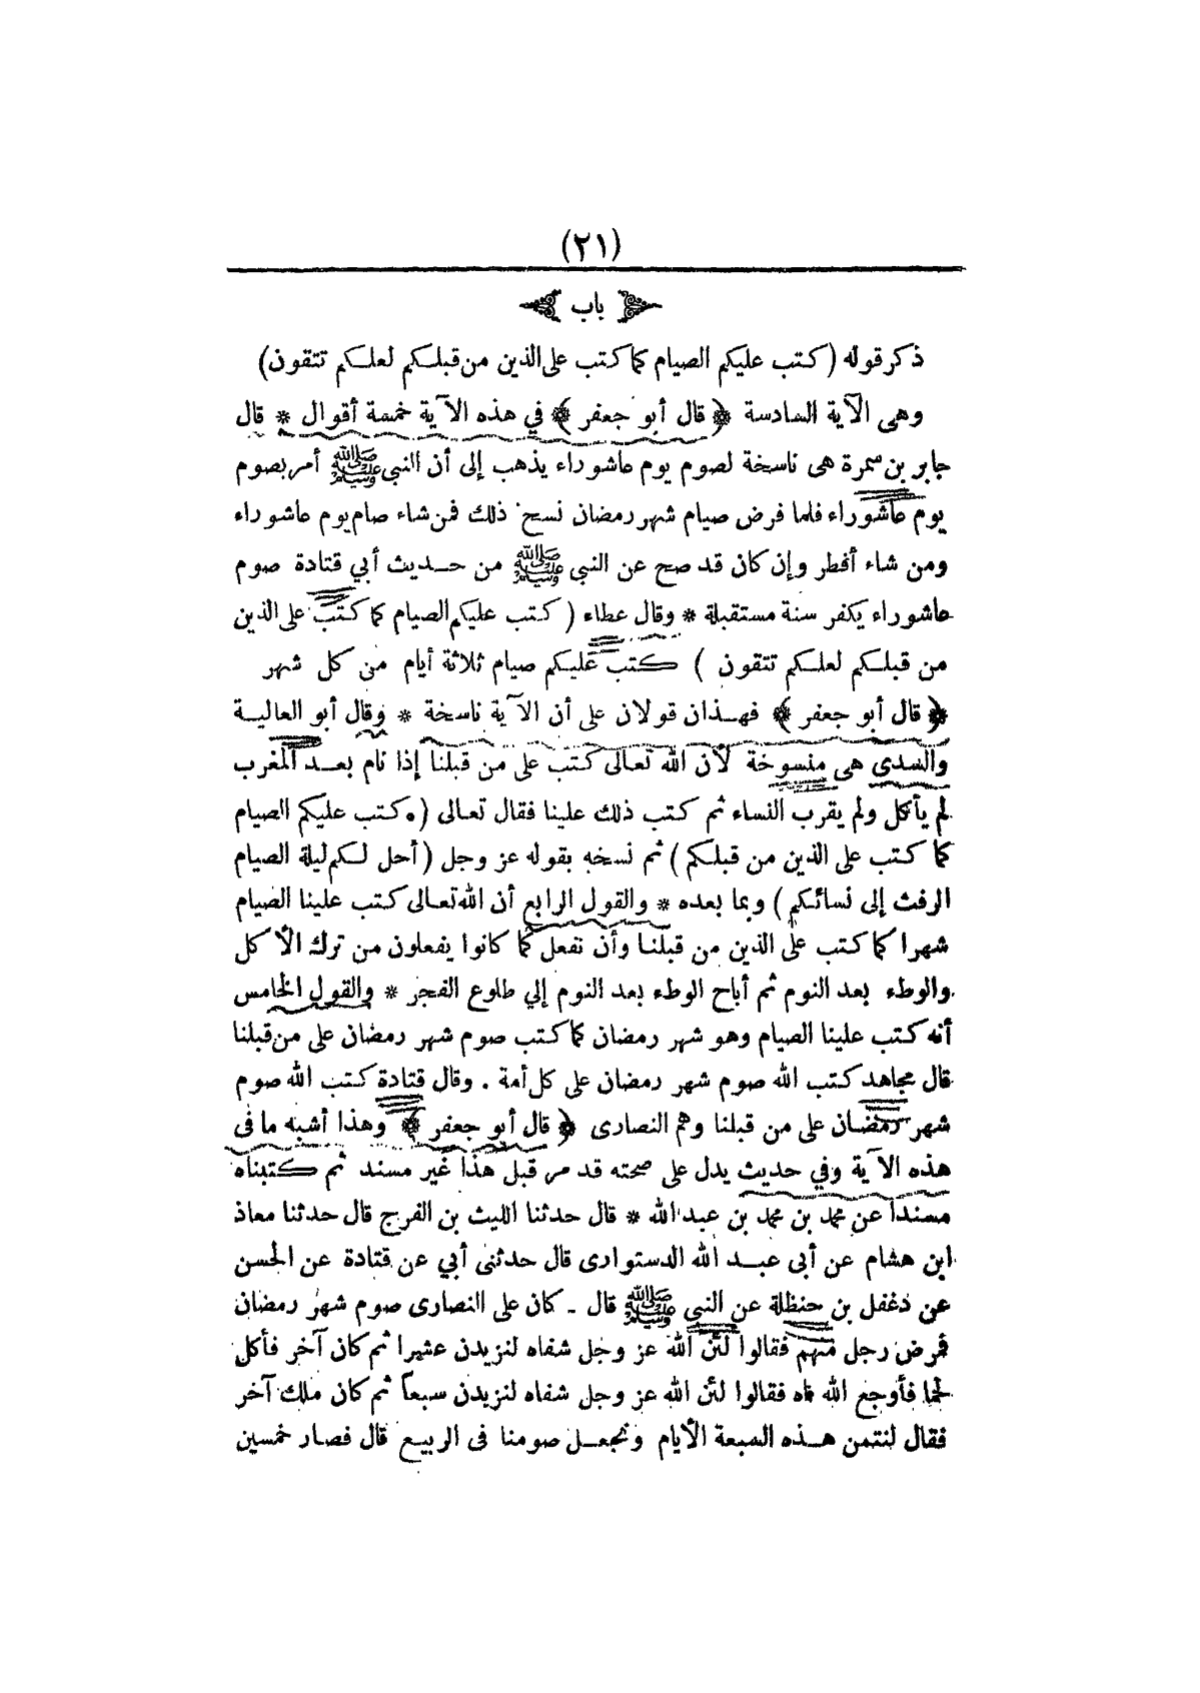 (٢١)
باب
ذكر قوله (كتب عليكم الصيام كما كتب على الذين من قبلكم لعلكم تتقون)
وهى الآية السادسة ﴿قال أبو جعفر﴾ في هذه الآية خمسة أقوال * قال
جابر بن سمرة هى ناسخة لصوم يوم عاشوراء يذهب إلى أن النبي ﷺ أمر بصوم
يوم عاشوراء فلما فرض صيام شهر رمضان نسخ ذلك فمن شاء صام يوم عاشوراء
ومن شاء أفطر وإن كان قد صح عن النبي ﷺ من حديث أبي قتادة صوم
عاشوراء يكفر سنة مستقبلة * وقال عطاء (كتب عليكم الصيام كما كتب على الذين
من قبلكم لعلكم تتقون) كتب عليكم صيام ثلاثة أيام من كل شهر
﴿قال أبو جعفر﴾ فهذان قولان على أن الآية ناسخة * وقال أبو العالية
والسدى هى منسوخة لأن الله تعالى كتب على من قبلنا إذا نام بعد المغرب
لم يأكل ولم يقرب النساء ثم كتب ذلك علينا فقال تعالى (كتب عليكم الصيام
كما كتب على الذين من قبلكم) ثم نسخه بقوله عز وجل (أحل لكم ليلة الصيام
الرفث إلى نسائكم) وبما بعده * والقول الرابع أن الله تعالى كتب علينا الصيام
شهرا كما كتب على الذين من قبلنا وأن نفعل كما كانوا يفعلون من ترك الأكل
والوطء بعد النوم ثم أباح الوطء بعد النوم إلي طلوع الفجر * والقول الخامس
أنه كتب علينا الصيام وهو شهر رمضان كما كتب صوم شهر رمضان على من قبلنا
قال مجاهد كتب الله صوم شهر رمضان على كل أمة . وقال قتادة كتب الله صوم
شهر رمضان على من قبلنا وهم النصارى ﴿قال أبو جعفر﴾ وهذا أشبه ما فى
هذه الآية وفي حديث يدل على صحته قد مر قبل هذا غير مسند ثم كتبناه
مسندا عن محمد بن محمد بن عبد الله * قال حدثنا الليث بن الفرج قال حدثنا معاذ
ابن هشام عن أبى عبد الله الدستوارى قال حدثنى أبي عن قتادة عن الحسن
عن دغفل بن حنظلة عن النبي ﷺ قال ـ كان على النصارى صوم شهر رمضان
فمرض رجل منهم فقالوا لئن الله عز وجل شفاه لنزيدن عشيرا ثم كان آخر فأكل
لحما فأوجع الله فاه فقالوا لئن الله عز وجل شفاه لنزيدن سبعاً ثم كان ملك آخر
فقال لنتمن هذه السبعة الأيام ونجعل صومنا فى الربيع قال فصار خمسين